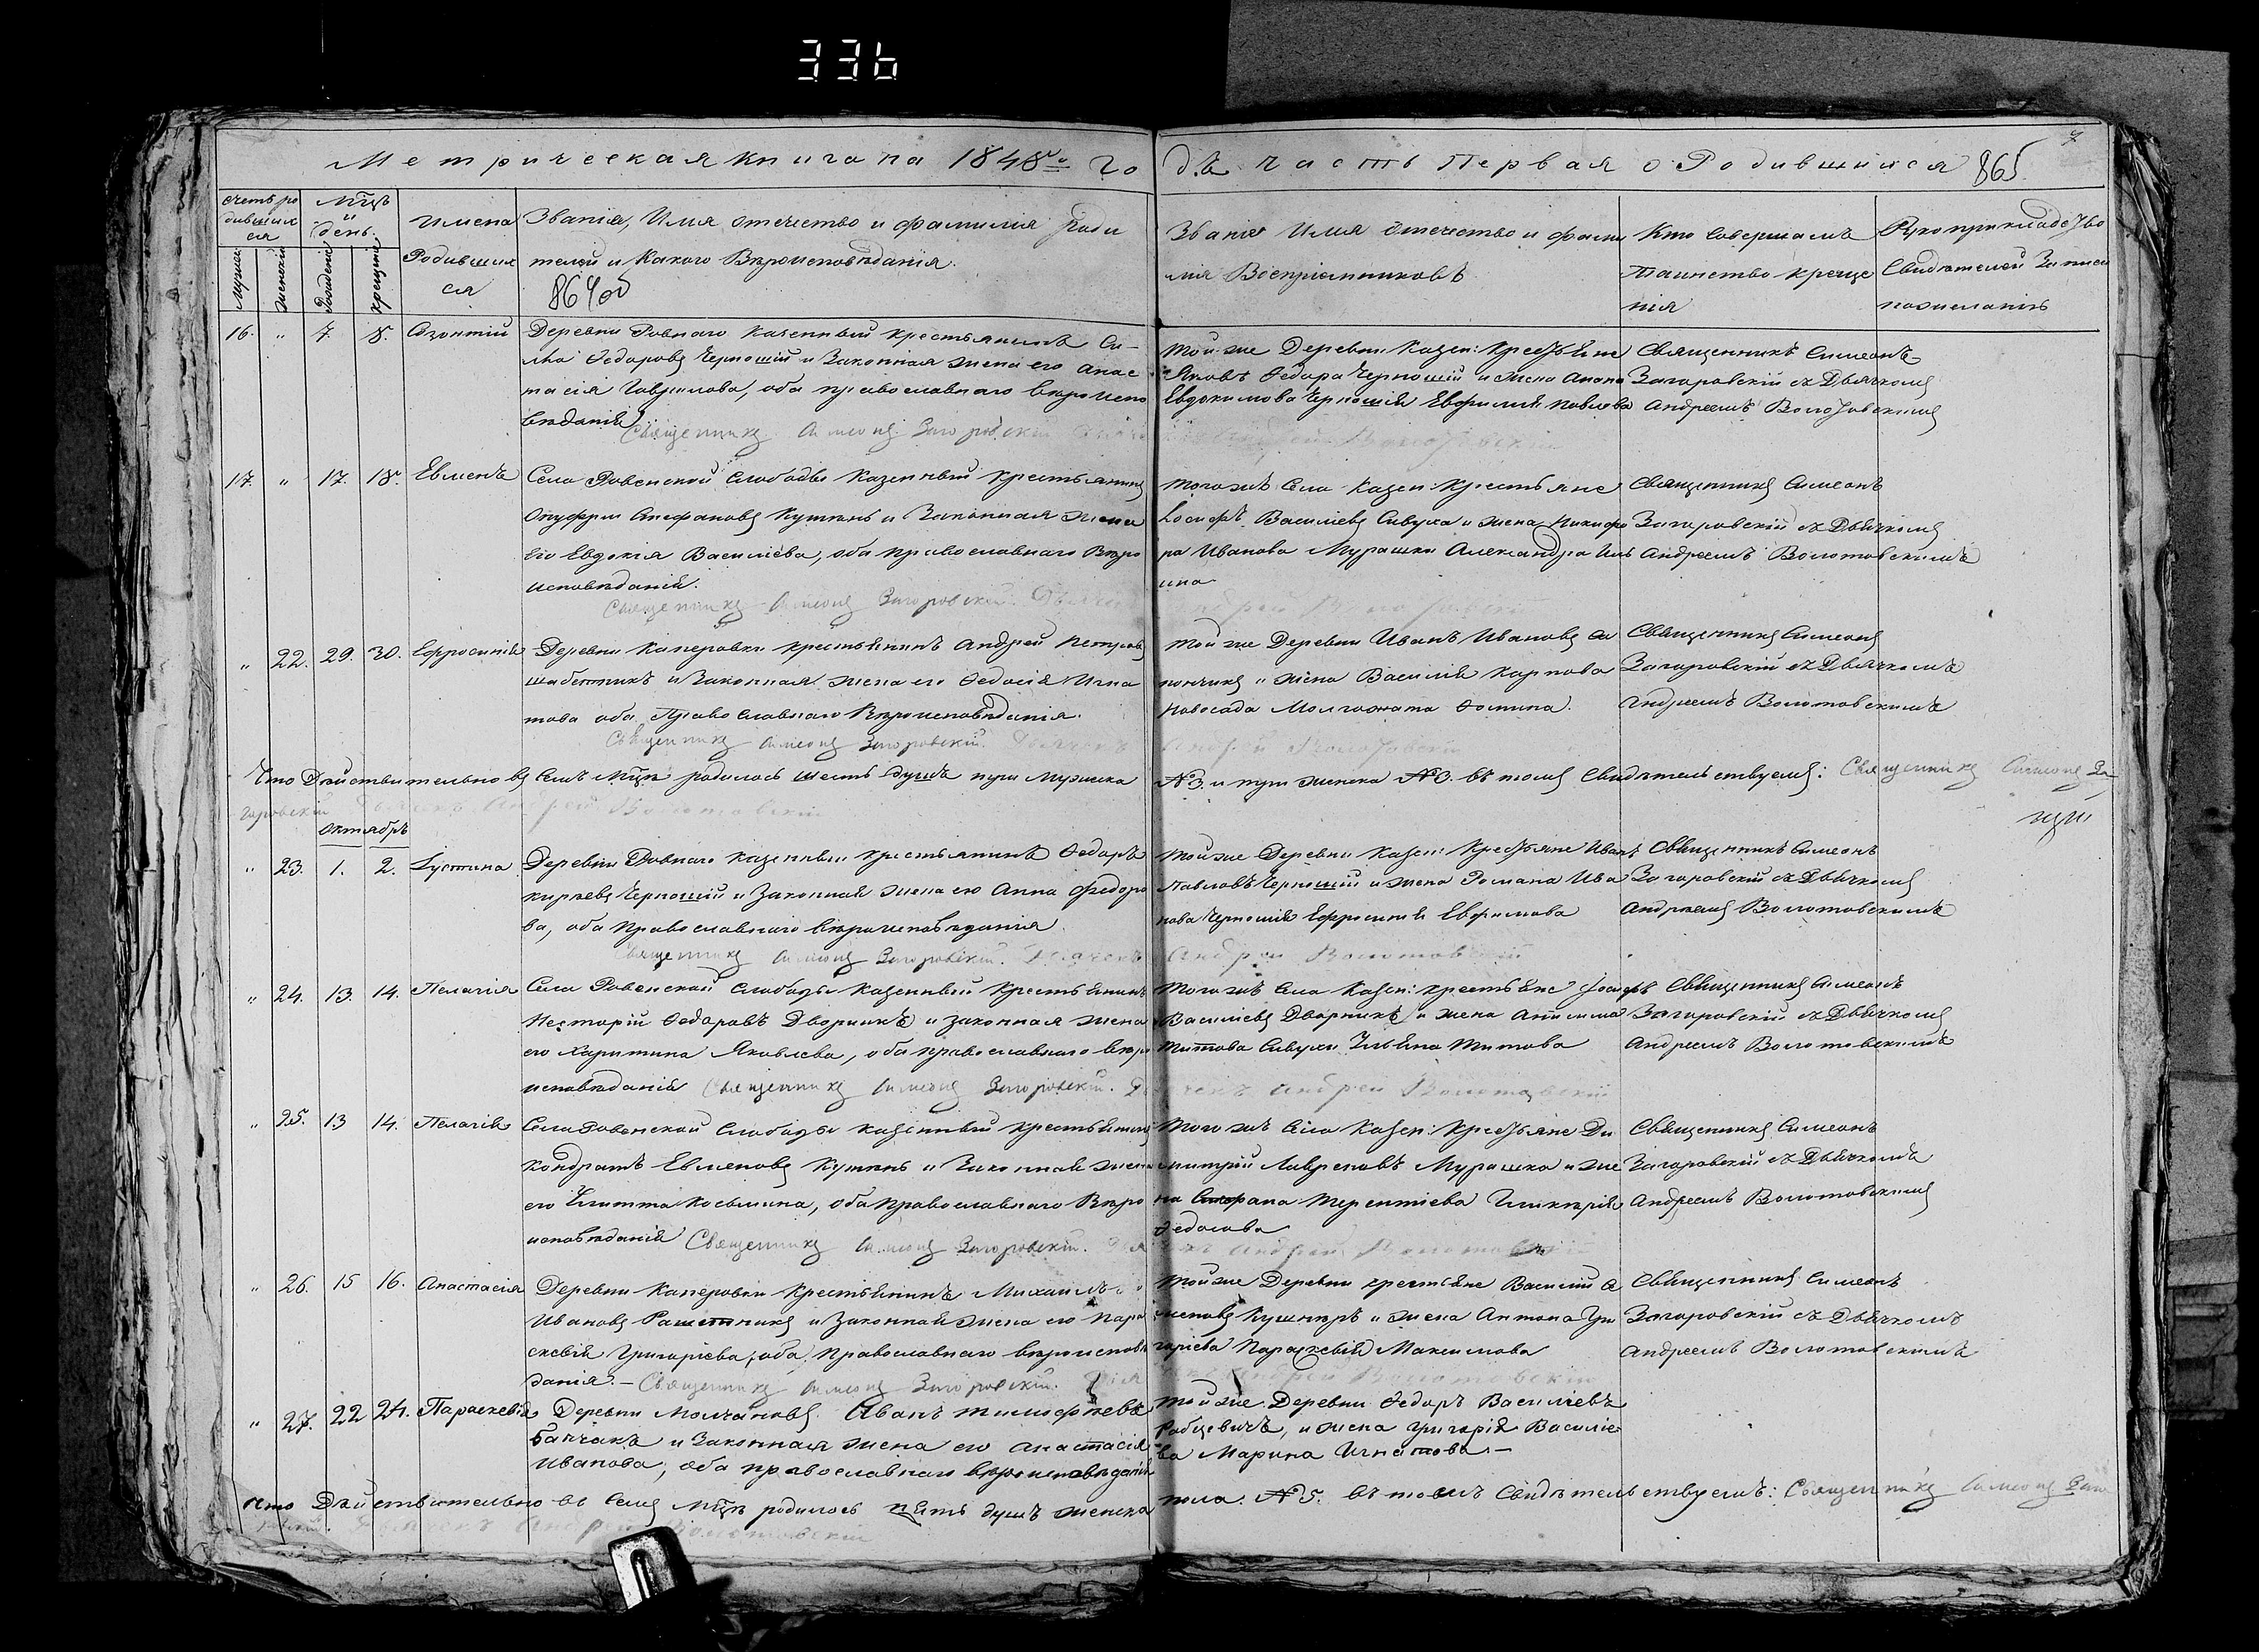 336
Метрическая книга на 1848го го
дъ часть Первая о Родившихся 865
7
счетъ ро
дившихся
мцъ
и
день.
мужеск
женскій
рожденіе
крещеніе
имена
Родившихся
Званія, Имя отечество и фамилія Роди
телей и Какого Вѣроисповѣданія.
864об
Званіе Имя Отечество и фами
лія Воспріемниковъ
Кто Совершалъ
Таинство Креще
нія
Рукоприкладство
Свидѣтелей Записи
по желанію
16. " 7. 8. Созонтій
Деревни Ровнаго Казенный крестьянинъ Си-
ла Ѳедоровъ Черношій и Законная жена его Анас
тасія Гаврилова, оба православнаго вѣроиспо
вѣданія
Священникъ Симеонъ Загоровскій
Той же Деревни Казен: Крестьяне
Яковъ Ѳедора Черношій и жена
Евдокимова Черношія Евфимія Павлова
Священникъ Симеонъ
Загоровскій съ Дьячкомъ
Андреемъ Волотовскимъ
17. " 17. 18. Евменъ
Села Ровенской Слободы Казенный Крестьянинъ
Онуфрій Стефановъ Кутянъ и Законная жена
Его Евдокія Василіева, оба православнаго Вѣро
исповѣданія.
Священникъ Симеонъ Загоровскій. Дьячекъ Андрей Волотовскій
Того жъ Села Казен: Крестьяне
Іосифъ Василіевъ Сивуха и жена Никифо
ра Иванова Мурашки Александра Иль
ина
Священникъ Симеонъ
Загоровскій съ Дьячкомъ
Андреемъ Волотовскимъ
" 22. 29. 30. Ефросинія
Деревни Каперовки крестьянинъ Андрей Петровъ
и Законная жена его Ѳедосія Игна
това оба Православнаго Вѣроисповѣданія.
Священникъ Симеонъ Загоровскій. Дьячекъ Андрей Волотовскій
Той же Деревни Иванъ Ивановъ
и жена Василія Карпова
Новосада Ѳомина.
Священникъ Симеонъ
Загоровскій съ Дьячкомъ
Андреемъ Волотовскимъ
Что Дѣйствительно въ Семъ мцѣ родилось шесть душъ мужеска
№3. и женска №3. въ томъ Свидѣтельствуемъ: Священникъ Симеонъ За-
горовскій Дьячекъ Андрей Волотовскій
октябрь
" 23. 1. 2. Іустина
Деревни Ровнаго казенный крестьянинъ Ѳедоръ
Черношій и Законная жена его Анна Ѳедоро
ва, оба Православнаго Вѣроисповѣданія
Священникъ Симеонъ Загоровскій. Дьячекъ Андрей Волотовскій
Той же Деревни Казен: Крестьяне Иванъ
Павловъ Черношій и жена Романа Ива
нова Черношія Ефросинія Ефимова
Священникъ Симеонъ
Загоровскій съ Дьячкомъ
Андреемъ Волотовскимъ
" 24. 13. 14. Пелагія
Села Ровенской Слободы Казенный Крестьянинъ
Несторій Ѳедоровъ Дворникъ и законная жена
его Харитина Яковлева, оба православнаго вѣро
исповѣданія Священникъ Симеонъ Загоровскій. Дьячекъ Андрей Волотовскій
Того жъ Села Казен: крестьяне Іосифъ
Василіевъ Дворникъ и жена
Титова Сивухи Ульяна Титова
Священникъ Симеонъ
Загоровскій съ Дьячкомъ
Андреемъ Волотовскимъ
" 25. 13 14. Пелагія
Села Ровенской Слободы казенный крестьянинъ
Кондратъ Евменовъ Кутянъ и Законная жена
его Косьмина, оба Православнаго Вѣро
исповѣданія Священникъ Симеонъ Загоровскій. Дьячекъ Андрей Волотовскій
Того жъ Села Казен: Крестьяне Ди
митрій Лавреновъ Мурашка и же
на Терентіева Гликерія
Ѳедосова
Священникъ Симеонъ
Загоровскій съ Дьячкомъ
Андреемъ Волотовскимъ
" 26. 15 16. Анастасія
Деревни Каперовки Крестьянинъ Михаилъ
Ивановъ и Законная жена его Пара
скевія Григоріева, оба Православнаго вѣроисповѣ
данія. – Священникъ Симеонъ Загоровскій. Дьячекъ Андрей Волотовскій
Той же Деревни крестьяне Василій Се
меновъ Кушниръ и жена Антона Гри
горіева Параскевія Максимова
Священникъ Симеонъ
Загоровскій съ Дьячкомъ
Андреемъ Волотовскимъ
" 27. 22 24. Параскевія
Деревни Молчановъ Иванъ Тимофѣевъ
и Законная жена его Анастасія
Иванова, оба православнаго вѣроисповѣданія
Той же Деревни Ѳедоръ Василіевъ
Рабцевичъ, и жена Григорія Василіе
ва Марина Игнатова. –
Что Дѣйствительно въ Семъ Мцѣ родилось пять душъ женска
пола. №5. въ томъ Свидѣтельствуемъ: Священникъ Симеонъ Заго
ровскій. Дьячекъ Андрей Волотовскій